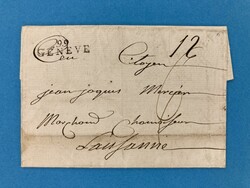 99
GENEVE
12
Au Citoyen
jean jaques Mercier
Marchand Chamoiseur
Lausanne